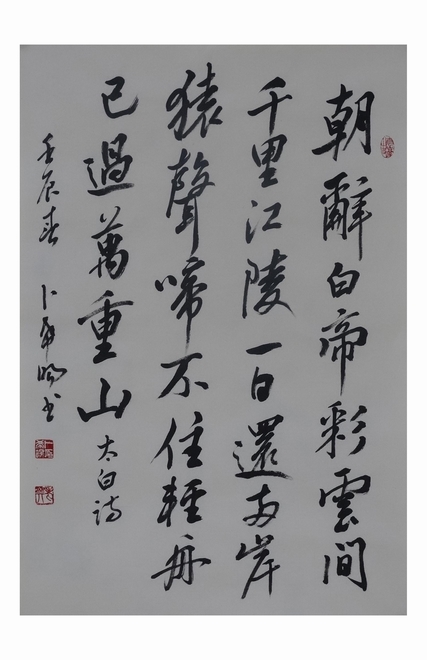 朝辭白帝彩雲間
千里江陵一日還兩岸
猿聲啼不住輕舟
已過萬重山 太白詩
壬辰春 卜 書